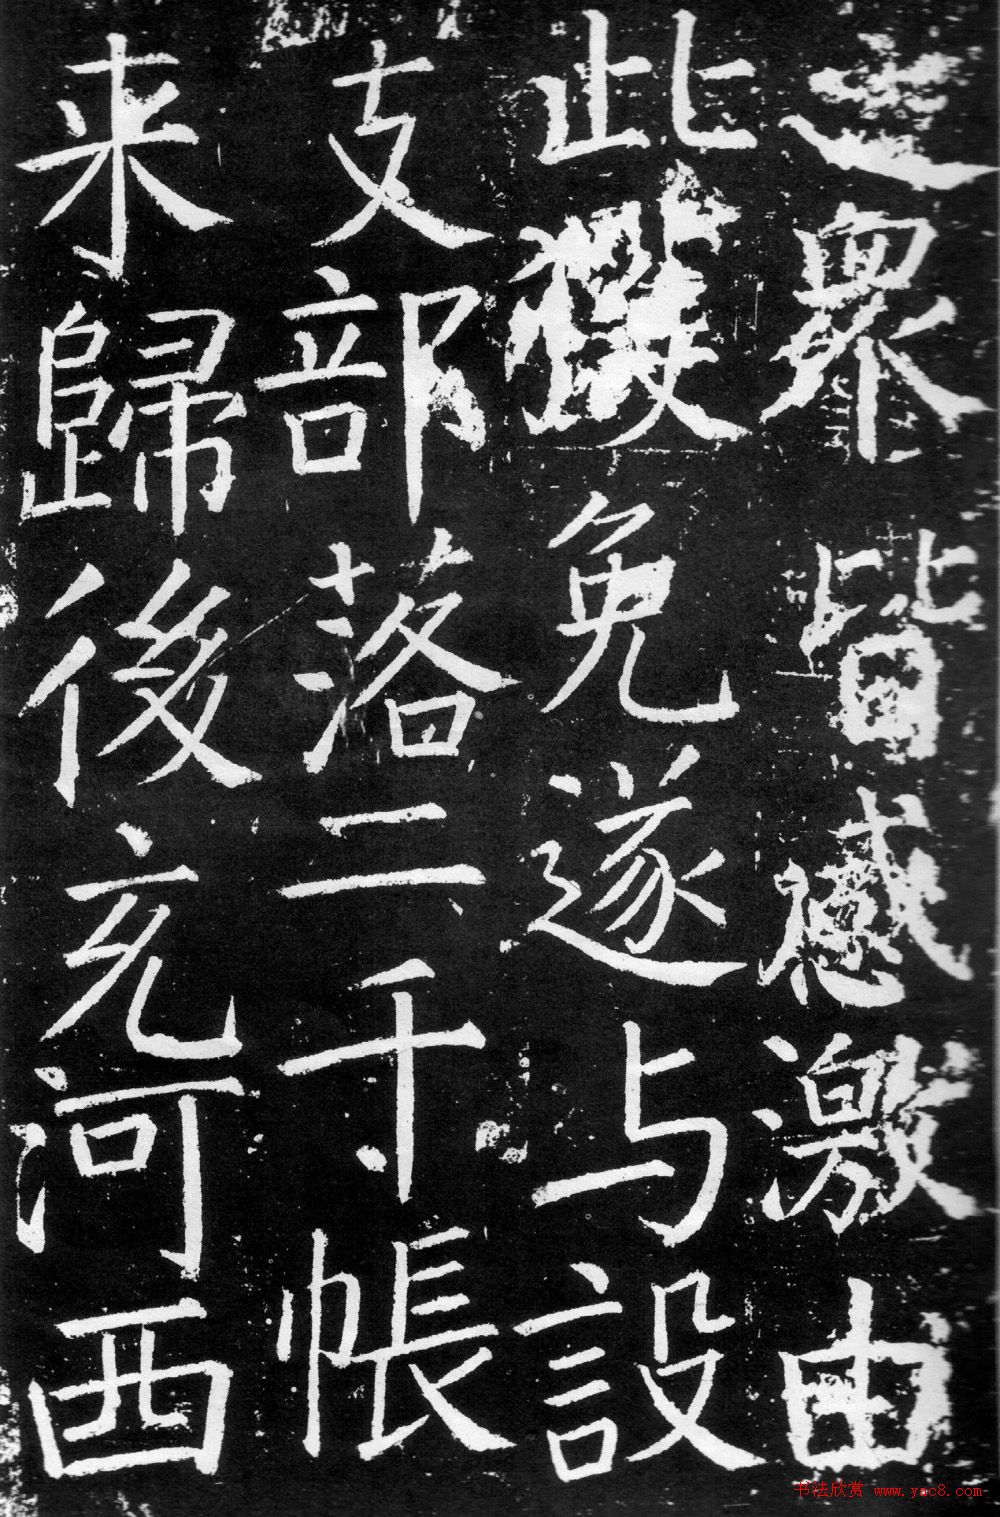 之眾皆感激由
此獲免遂与設
支部落二千帳
来歸後充河西
书法欣赏 www.yac8.com